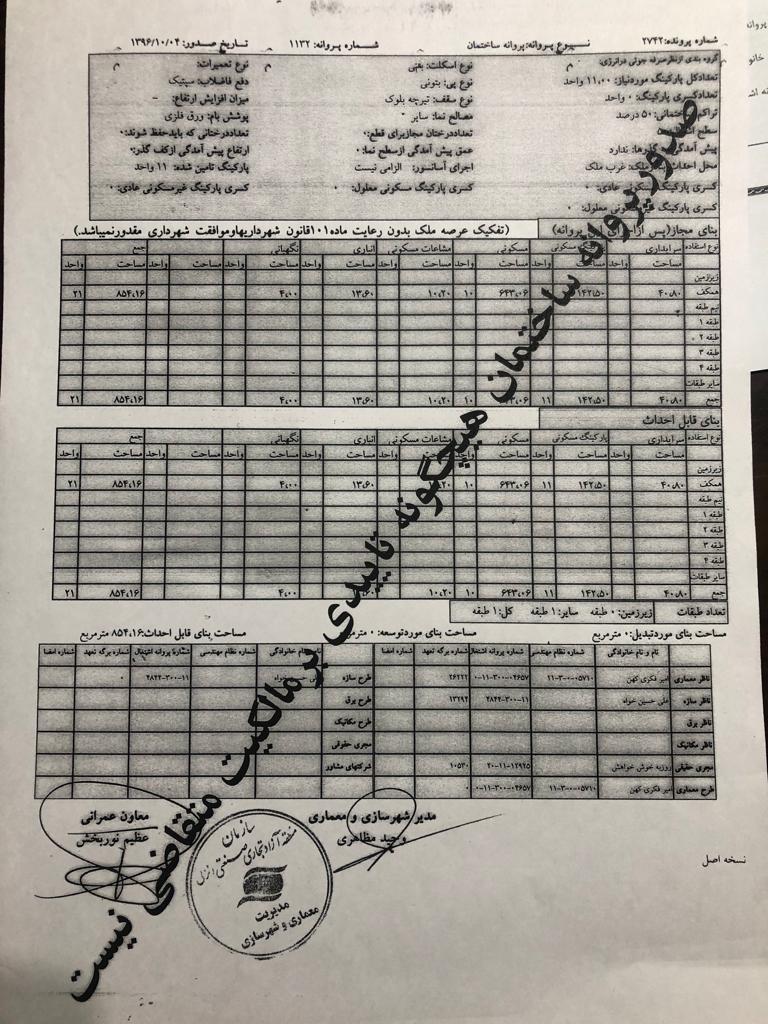 شماره پرونده: ۲۷۴۲ نوع پروانه: پروانه ساختمان شماره پروانه: ۱۱۳۲ تاریخ صدور: ۱۳۹۶/۱۰/۰۴
گروه بندی ازنظرصرفه جوئی درانرژی: نوع اسکلت: بتنی نوع تعمیرات:
تعدادکل پارکینگ موردنیاز: ۱۱،۰۰ واحد نوع پی: بتونی دفع فاضلاب: سپتیک
تعدادکسری پارکینگ: ۰ واحد نوع سقف: تیرچه بلوک میزان افزایش ارتفاع: -
۵۰ درصد مصالح نما: سایر پوشش بام: ورق فلزی
سطح تعداددرختان مجازبرای قطع: ۰ تعداددرختانی که بایدحفظ شوند: ۰
پیش آمدگی گذرها: ندارد عمق پیش آمدگی ازسطح نما: ۰ ارتفاع پیش آمدگی ازکف گذر: ۰
محل احداث ملک: غرب ملک اجرای آسانسور: الزامی نیست پارکینگ تامین شده: ۱۱ واحد
کسری پارکینگ مسکونی عادی: ۰ کسری پارکینگ مسکونی معلول: ۰ کسری پارکینگ غیرمسکونی عادی: ۰
کسری پارکینگ غیرمسکونی معلول: ۰
بنای مجاز(پس ازاجرای پروانه) (تفکیک عرصه ملک بدون رعایت ماده۱۰۱قانون شهرداریهاوموافقت شهرداری مقدورنمیباشد.)
نوع استفاده سرایداری مسکونی مسکونی مشاعات مسکونی انباری نگهبانی جمع
مساحت واحد مساحت واحد مساحت واحد مساحت واحد مساحت واحد مساحت واحد مساحت واحد مساحت واحد
زیرزمین
همکف ۴۰،۸۰ ۱۴۲،۵۰ ۶۴۳،۰۶ ۱۰ ۱۰،۲۰ ۱۳،۶۰ ۴،۰۰ ۸۵۴،۱۶ ۲۱
نیم طبقه
طبقه ۱
طبقه ۲
طبقه ۳
طبقه ۴
سایر طبقات
جمع ۴۰،۸۰ ۱۴۲،۵۰ ۱۱ ۱۰ ۱۰،۲۰ ۱۳،۶۰ ۴،۰۰ ۸۵۴،۱۶ ۲۱
بنای قابل احداث
نوع استفاده سرایداری پارکینگ مسکونی مسکونی مشاعات مسکونی انباری نگهبانی جمع
مساحت واحد مساحت واحد مساحت واحد مساحت واحد مساحت واحد مساحت واحد مساحت واحد
زیرزمین
همکف ۴۰،۸۰ ۱۴۲،۵۰ ۱۱ ۶۴۳،۰۶ ۱۰ ۱۳،۶۰ ۴،۰۰ ۸۵۴،۱۶ ۲۱
نیم طبقه
طبقه ۱
طبقه ۲
طبقه ۳
طبقه ۴
سایر طبقات
جمع ۴۰،۸۰ ۱۴۲،۵۰ ۱۱ ۶۴۳،۰۶ ۱۰ ۱۰،۲۰ ۴،۰۰ ۸۵۴،۱۶ ۲۱
تعداد طبقات زیرزمین: ۰ طبقه سایر: ۱ طبقه کل: ۱ طبقه
مساحت بنای موردتبدیل: ۰ مترمربع مساحت بنای موردتوسعه: ۰ مترمربع مساحت بنای قابل احداث: ۸۵۴،۱۶ مترمربع
نام و نام خانوادگی شماره نظام مهندسی شماره پروانه اشتغال شماره برگه تعهد شماره امضا نام خانوادگی شماره نظام مهندسی شماره پروانه اشتغال شماره برگه تعهد شماره امضا
ناظر معماری امیر فکری کهن ۱۱-۳-۰-۰۵۷۱۰ ۰-۱۱-۳۰۰-۰۴۶۵۷ ۲۶۲۲۲ طرح سازه ۲۸۴۴-۳۰۰-۱۱ ۰
ناظر سازه علی حسین خواه ۲۸۴۴-۳۰۰-۱۱ ۱۳۲۹۴ طرح برق
ناظر برق طرح مکانیک
ناظر مکانیک مجری حقوقی
مجری حقیقی روزبه خوش خواهش ۲۰-۱۱-۱۲۹۲۵ ۱۰۵۳۰ شرکتهای مشاور
طرح معماری امیر فکری کهن ۱۱-۳-۰-۰۵۷۱۰ ۰-۱۱-۳۰۰-۰۴۶۵۷ ۰
صدور پروانه ساختمان هیچگونه تاییدی بر مالکیت متقاضی نیست
مدیر شهرسازی و معماری
وحید مظاهری
معاون عمرانی
عظیم نوربخش
سازمان
منطقه آزاد تجاری صنعتی انزلی
مدیریت
معماری و شهرسازی
نسخه اصل
پروانه